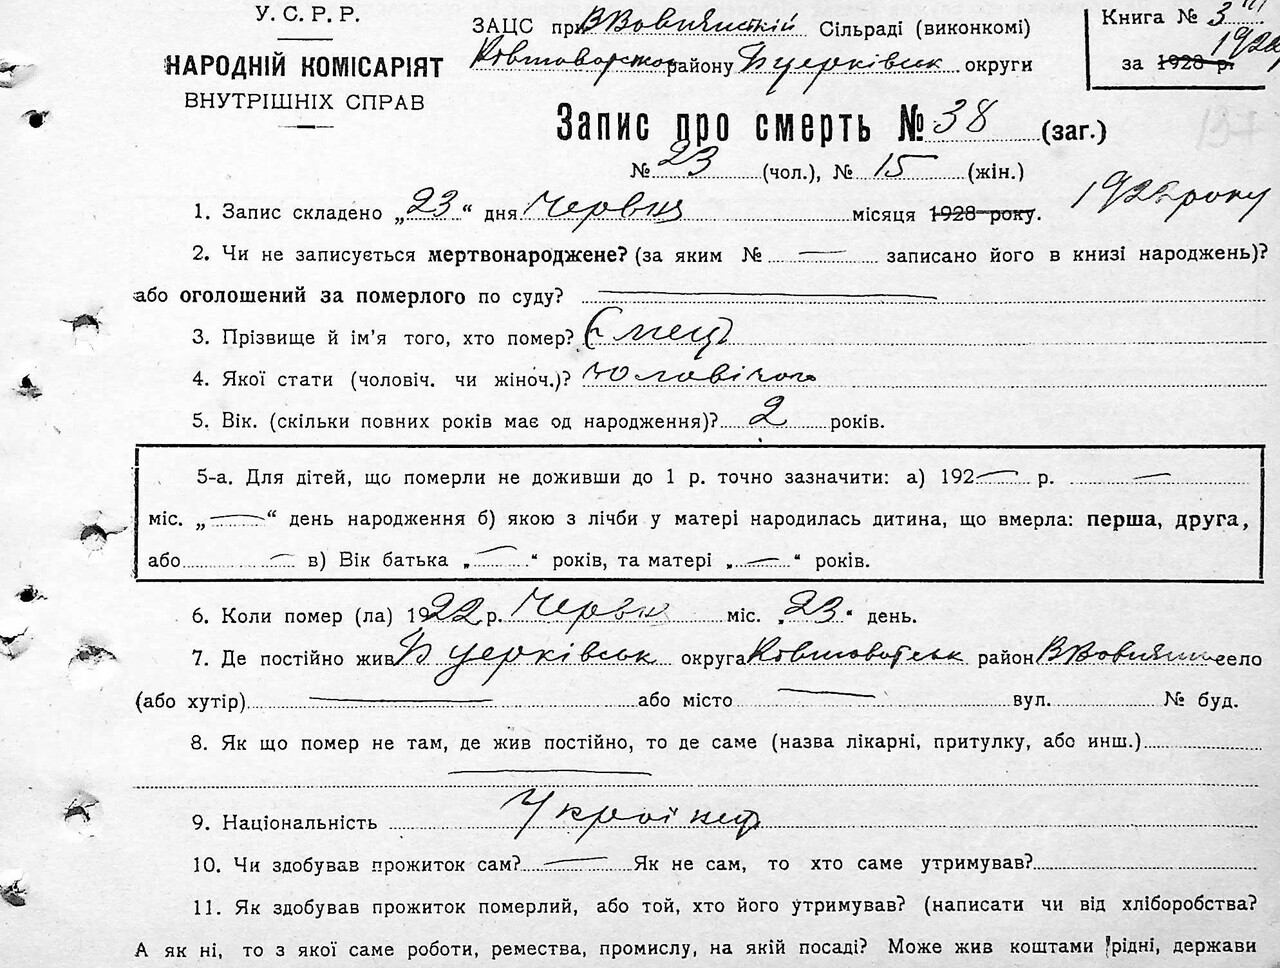 У. С. Р. Р.
НАРОДНІЙ КОМІСАРІЯТ
ВНУТРІШНІХ СПРАВ
ЗАЦС при Сільраді (виконкомі)
району округи
Книга № 3
за 1928 р.
Запис про смерть № 38 (заг.)
№ 23 (чол.), № 15 (жін.)
1. Запис складено „23“ дня Червня місяця 1928 року. 1922 року
2. Чи не записується мертвонароджене? (за яким № — записано його в книзі народжень)?
або оголошений за померлого по суду? —
3. Прізвище й ім’я того, хто помер?
4. Якої стати (чоловіч. чи жіноч.)? Чоловічого
5. Вік. (скільки повних років має од народження)? 2 років.
5-а. Для дітей, що померли не доживши до 1 р. точно зазначити: а) 192— р. —
міс. „—“ день народження б) якою з лічби у матері народилась дитина, що вмерла: перша, друга,
або — в) Вік батька „—“ років, та матері „—“ років.
6. Коли помер (ла) 1922 р. Червня міс. „23“ день.
7. Де постійно жив округа район село
(або хутір) — або місто — вул. № буд.
8. Як що помер не там, де жив постійно, то де саме (назва лікарні, притулку, або инш.)
—
9. Національність Українец
10. Чи здобував прожиток сам? — Як не сам, то хто саме утримував?
11. Як здобував прожиток померлий, або той, хто його утримував? (написати чи від хліборобства?
А як ні, то з якої саме роботи, ремества, промислу, на якій посаді? Може жив коштами рідні, держави